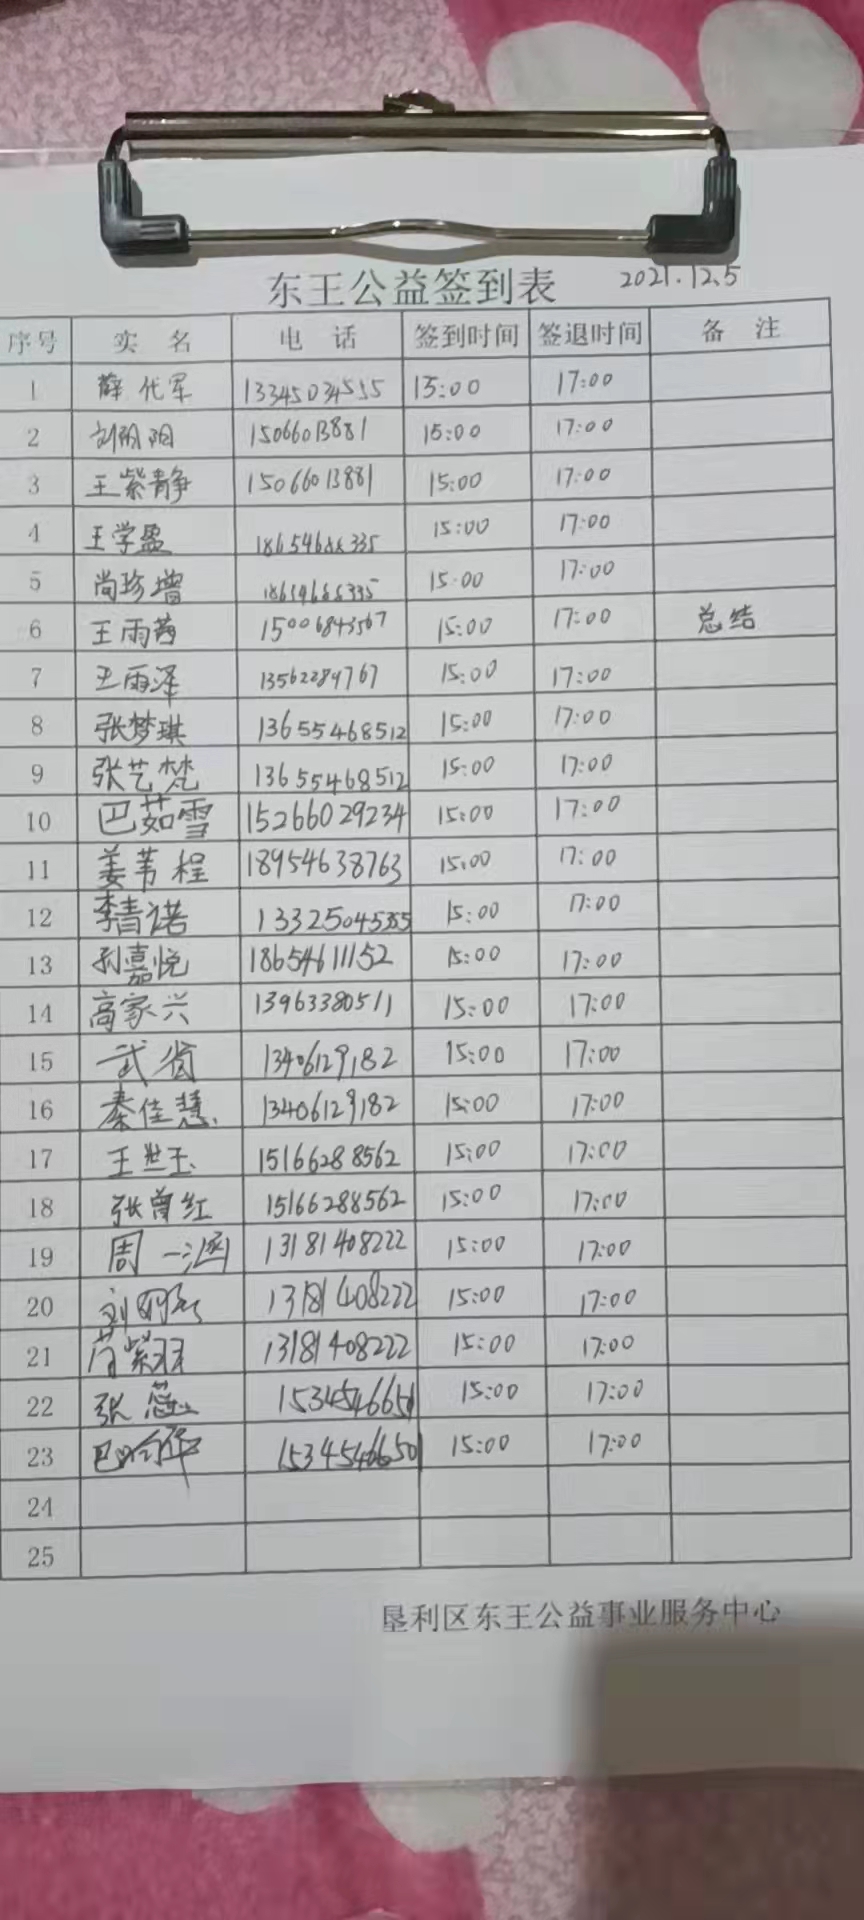 东王公益签到表 2021.12.5
序号 实名 电话 签到时间 签退时间 备注
1 薛代军 13345034555 15:00 17:00
2 刘阴阳 15066013881 15:00 17:00
3 王紫静 15066013881 15:00 17:00
4 王学盈 15:00 17:00
5 尚珍增 15:00 17:00
6 王雨茜 15006843567 15:00 17:00 总结
7 王雨泽 13562284767 15:00 17:00
8 张梦琪 13655468512 15:00 17:00
9 张艺梵 13655468512 15:00 17:00
10 巴茹雪 15266029234 15:00 17:00
11 姜苇程 18954638763 15:00 17:00
12 李青诺 15:00 17:00
13 孙嘉悦 18654611152 15:00 17:00
14 高家兴 13963380511 15:00 17:00
15 武省 13406129182 15:00 17:00
16 秦佳慧 13406129182 15:00 17:00
17 王世玉 15166288562 15:00 17:00
18 张曾红 15166288562 15:00 17:00
19 周一涵 13181408222 15:00 17:00
20 13181408222 15:00 17:00
21 13181408222 15:00 17:00
22 张蕊 15:00 17:00
23 15:00 17:00
24
25
垦利区东王公益事业服务中心